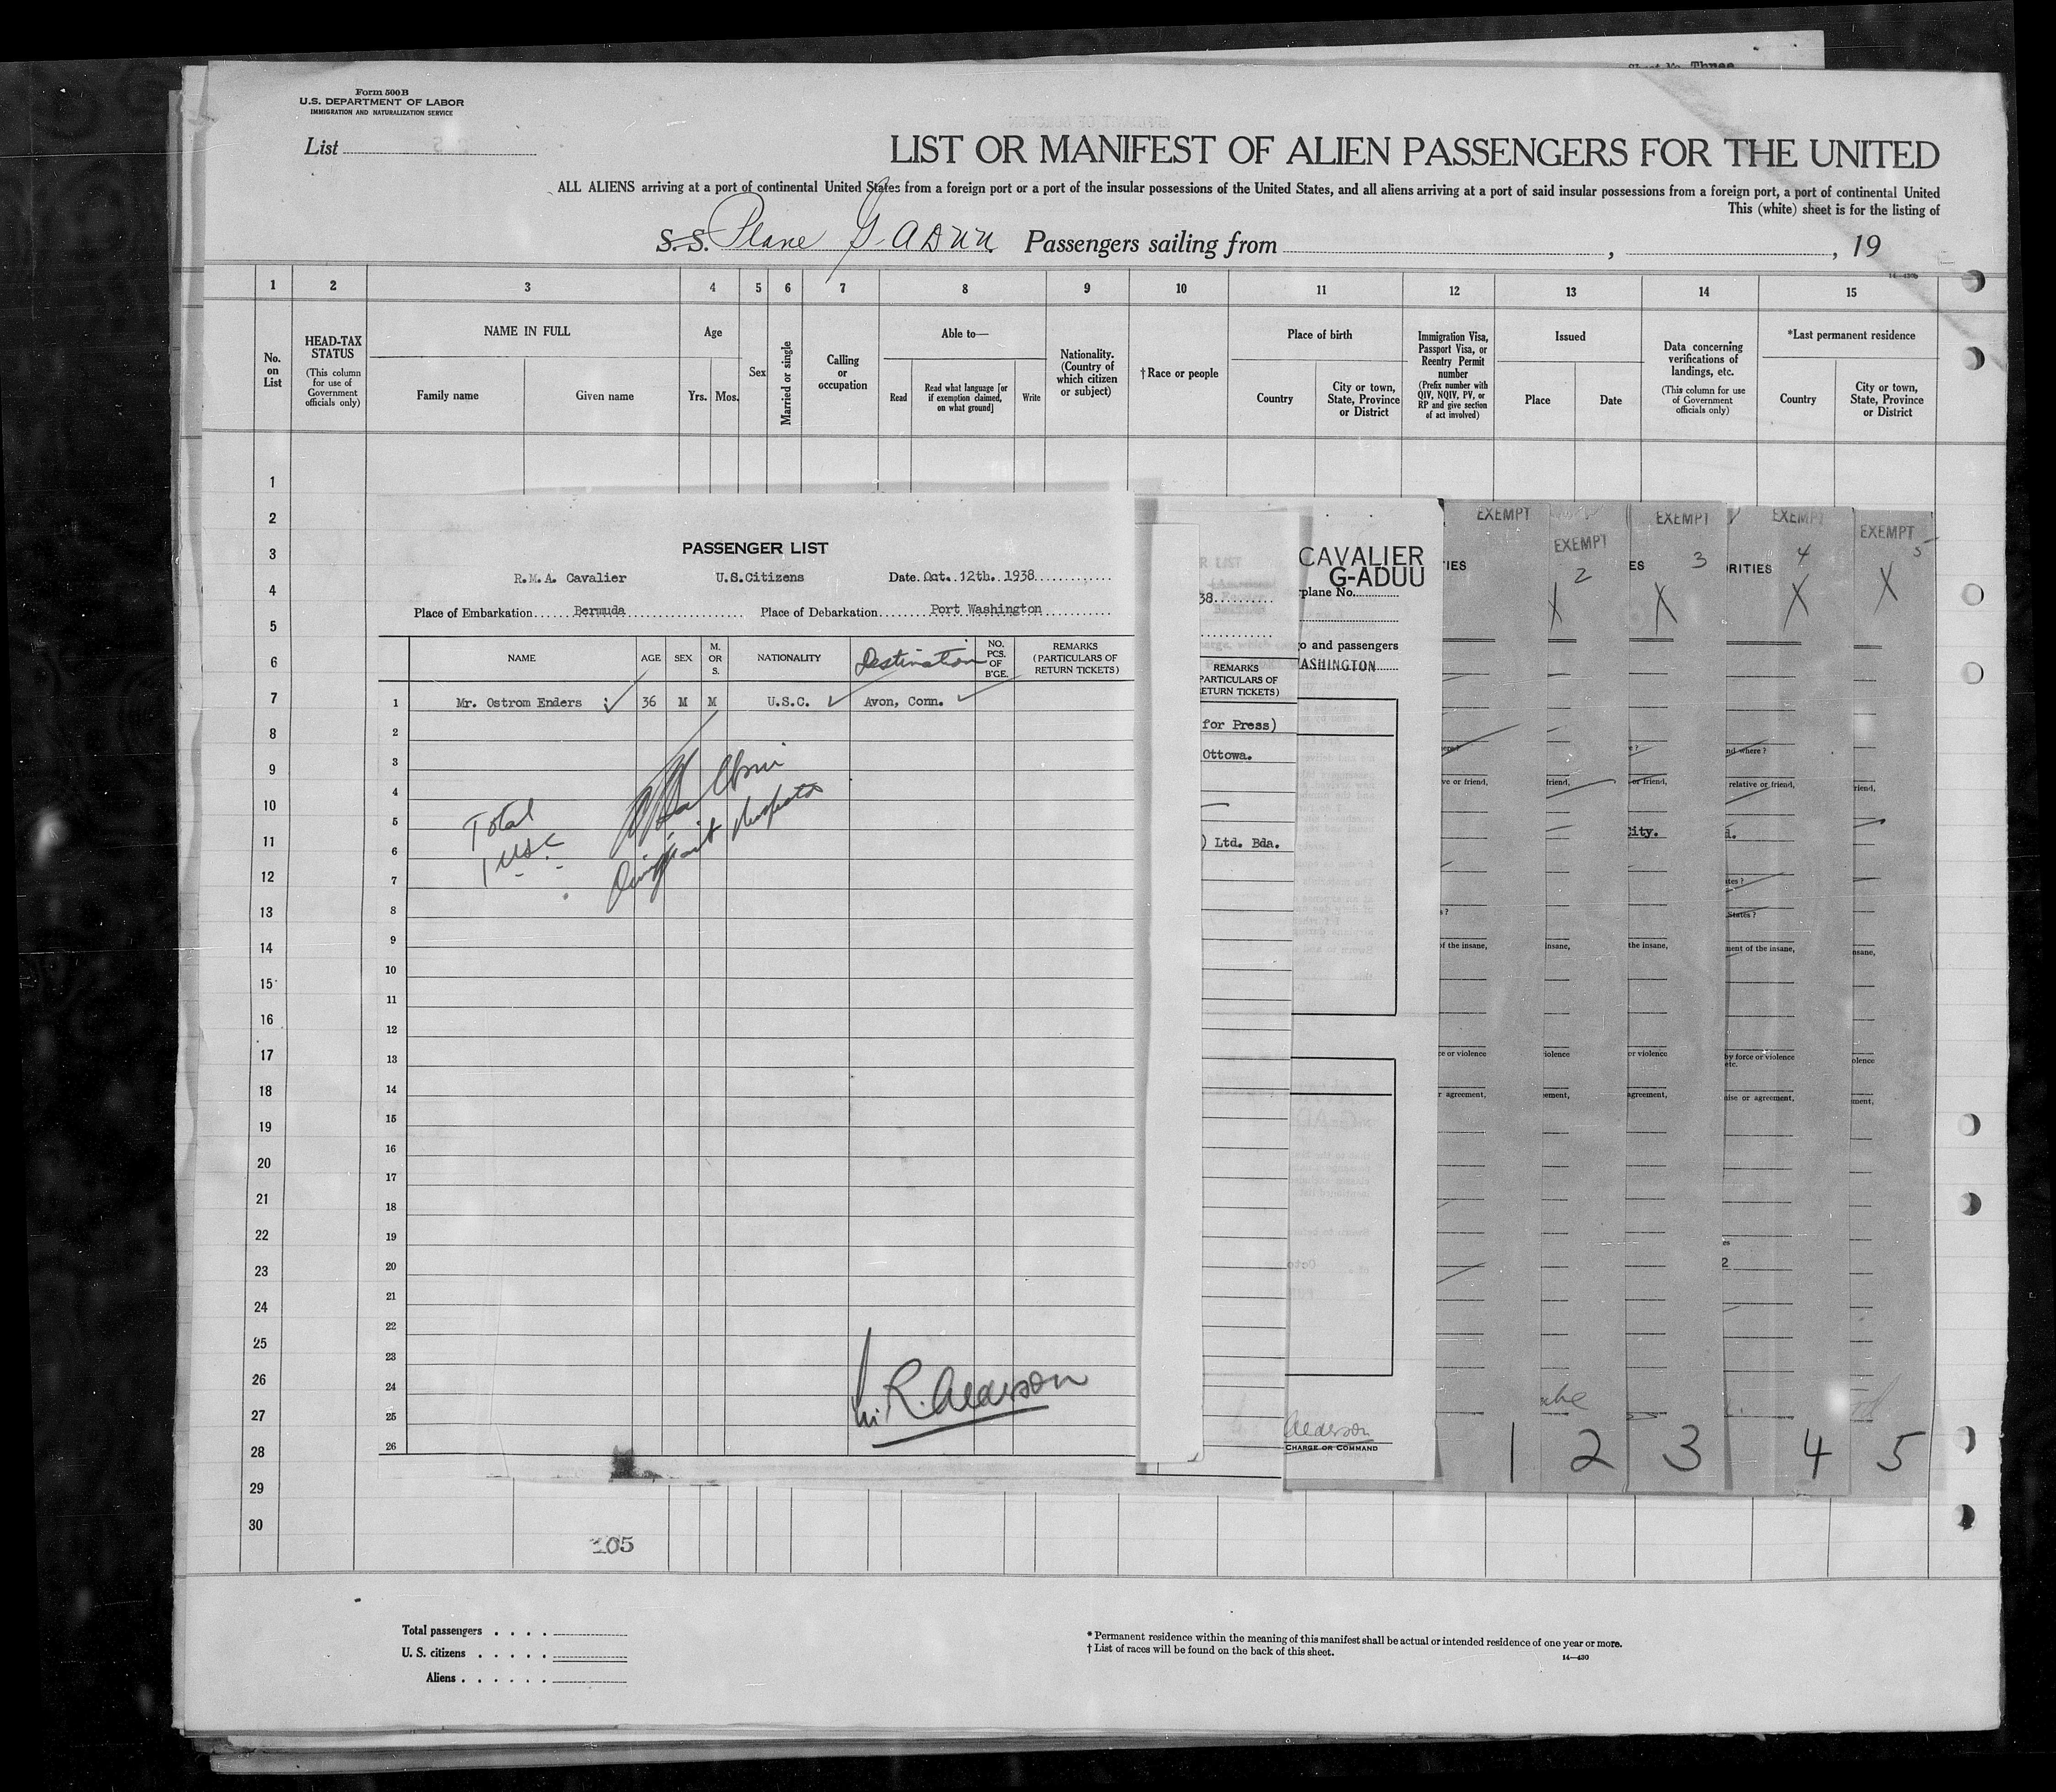 Sheet No. Three
Form 500 B
U.S. DEPARTMENT OF LABOR
IMMIGRATION AND NATURALIZATION SERVICE
List
LIST OR MANIFEST OF ALIEN PASSENGERS FOR THE UNITED
ALL ALIENS arriving at a port of continental United States from a foreign port or a port of the insular possessions of the United States, and all aliens arriving at a port of said insular possessions from a foreign port, a port of continental United
This (white) sheet is for the listing of
S.S. Plane G-ADUU Passengers sailing from , , 19
14—430
1 2 3 4 5 6 7 8 9 10 11 12 13 14 15
No. on List
HEAD-TAX STATUS
(This column for use of Government officials only)
NAME IN FULL
Family name
Given name
Age
Yrs. Mos.
Sex
Married or single
Calling or occupation
Able to—
Read
Read what language [or if exemption claimed, on what ground]
Write
Nationality. (Country of which citizen or subject)
†Race or people
Place of birth
Country
City or town, State, Province or District
Immigration Visa, Passport Visa, or Reentry Permit number
(Prefix number with QIV, NQIV, PV, or RP and give section of act involved)
Issued
Place
Date
Data concerning verifications of landings, etc.
(This column for use of Government officials only)
*Last permanent residence
Country
City or town, State, Province or District
1
2
3
4
5
6
7
8
9
10
11
12
13
14
15
16
17
18
19
20
21
22
23
24
25
26
27
28
29
30
PASSENGER LIST
R.M.A. Cavalier U.S.Citizens Date Oct. 12th. 1938
Place of Embarkation Bermuda Place of Debarkation Port Washington
NAME AGE SEX M. OR S. NATIONALITY Destination NO. PCS. OF B'GE. REMARKS (PARTICULARS OF RETURN TICKETS)
1 Mr. Ostrom Enders 36 M M U.S.C. Avon, Conn.
2
3
4
5
6
7
8
9
10
11
12
13
14
15
16
17
18
19
20
21
22
23
24
25
26
Total
1 USC
R. Alderson
R LIST
38
REMARKS
PARTICULARS OF
ETURN TICKETS)
for Press)
Ottowa.
) Ltd. Bda.
CAVALIER
G-ADUU
rplane No.
o and passengers
ASHINGTON
Alderson
CHARGE OR COMMAND
EXEMPT
IES
ere?
ve or friend,
s?
f the insane,
ce or violence
r agreement,
1
EXEMPT
2
X
friend,
insane,
iolence
eement,
2
EXEMPT
ES 3
X
e?
or friend,
City.
the insane,
or violence
agreement,
3
EXEMPT
4
RITIES
X
nd where?
relative or friend,
d.
tes?
States?
ment of the insane,
by force or violence
etc.
ise or agreement,
es
2
4
EXEMPT
5
X
riend,
nsane,
olence
ment,
5
105
Total passengers
U. S. citizens
Aliens
* Permanent residence within the meaning of this manifest shall be actual or intended residence of one year or more.
† List of races will be found on the back of this sheet.
14—430